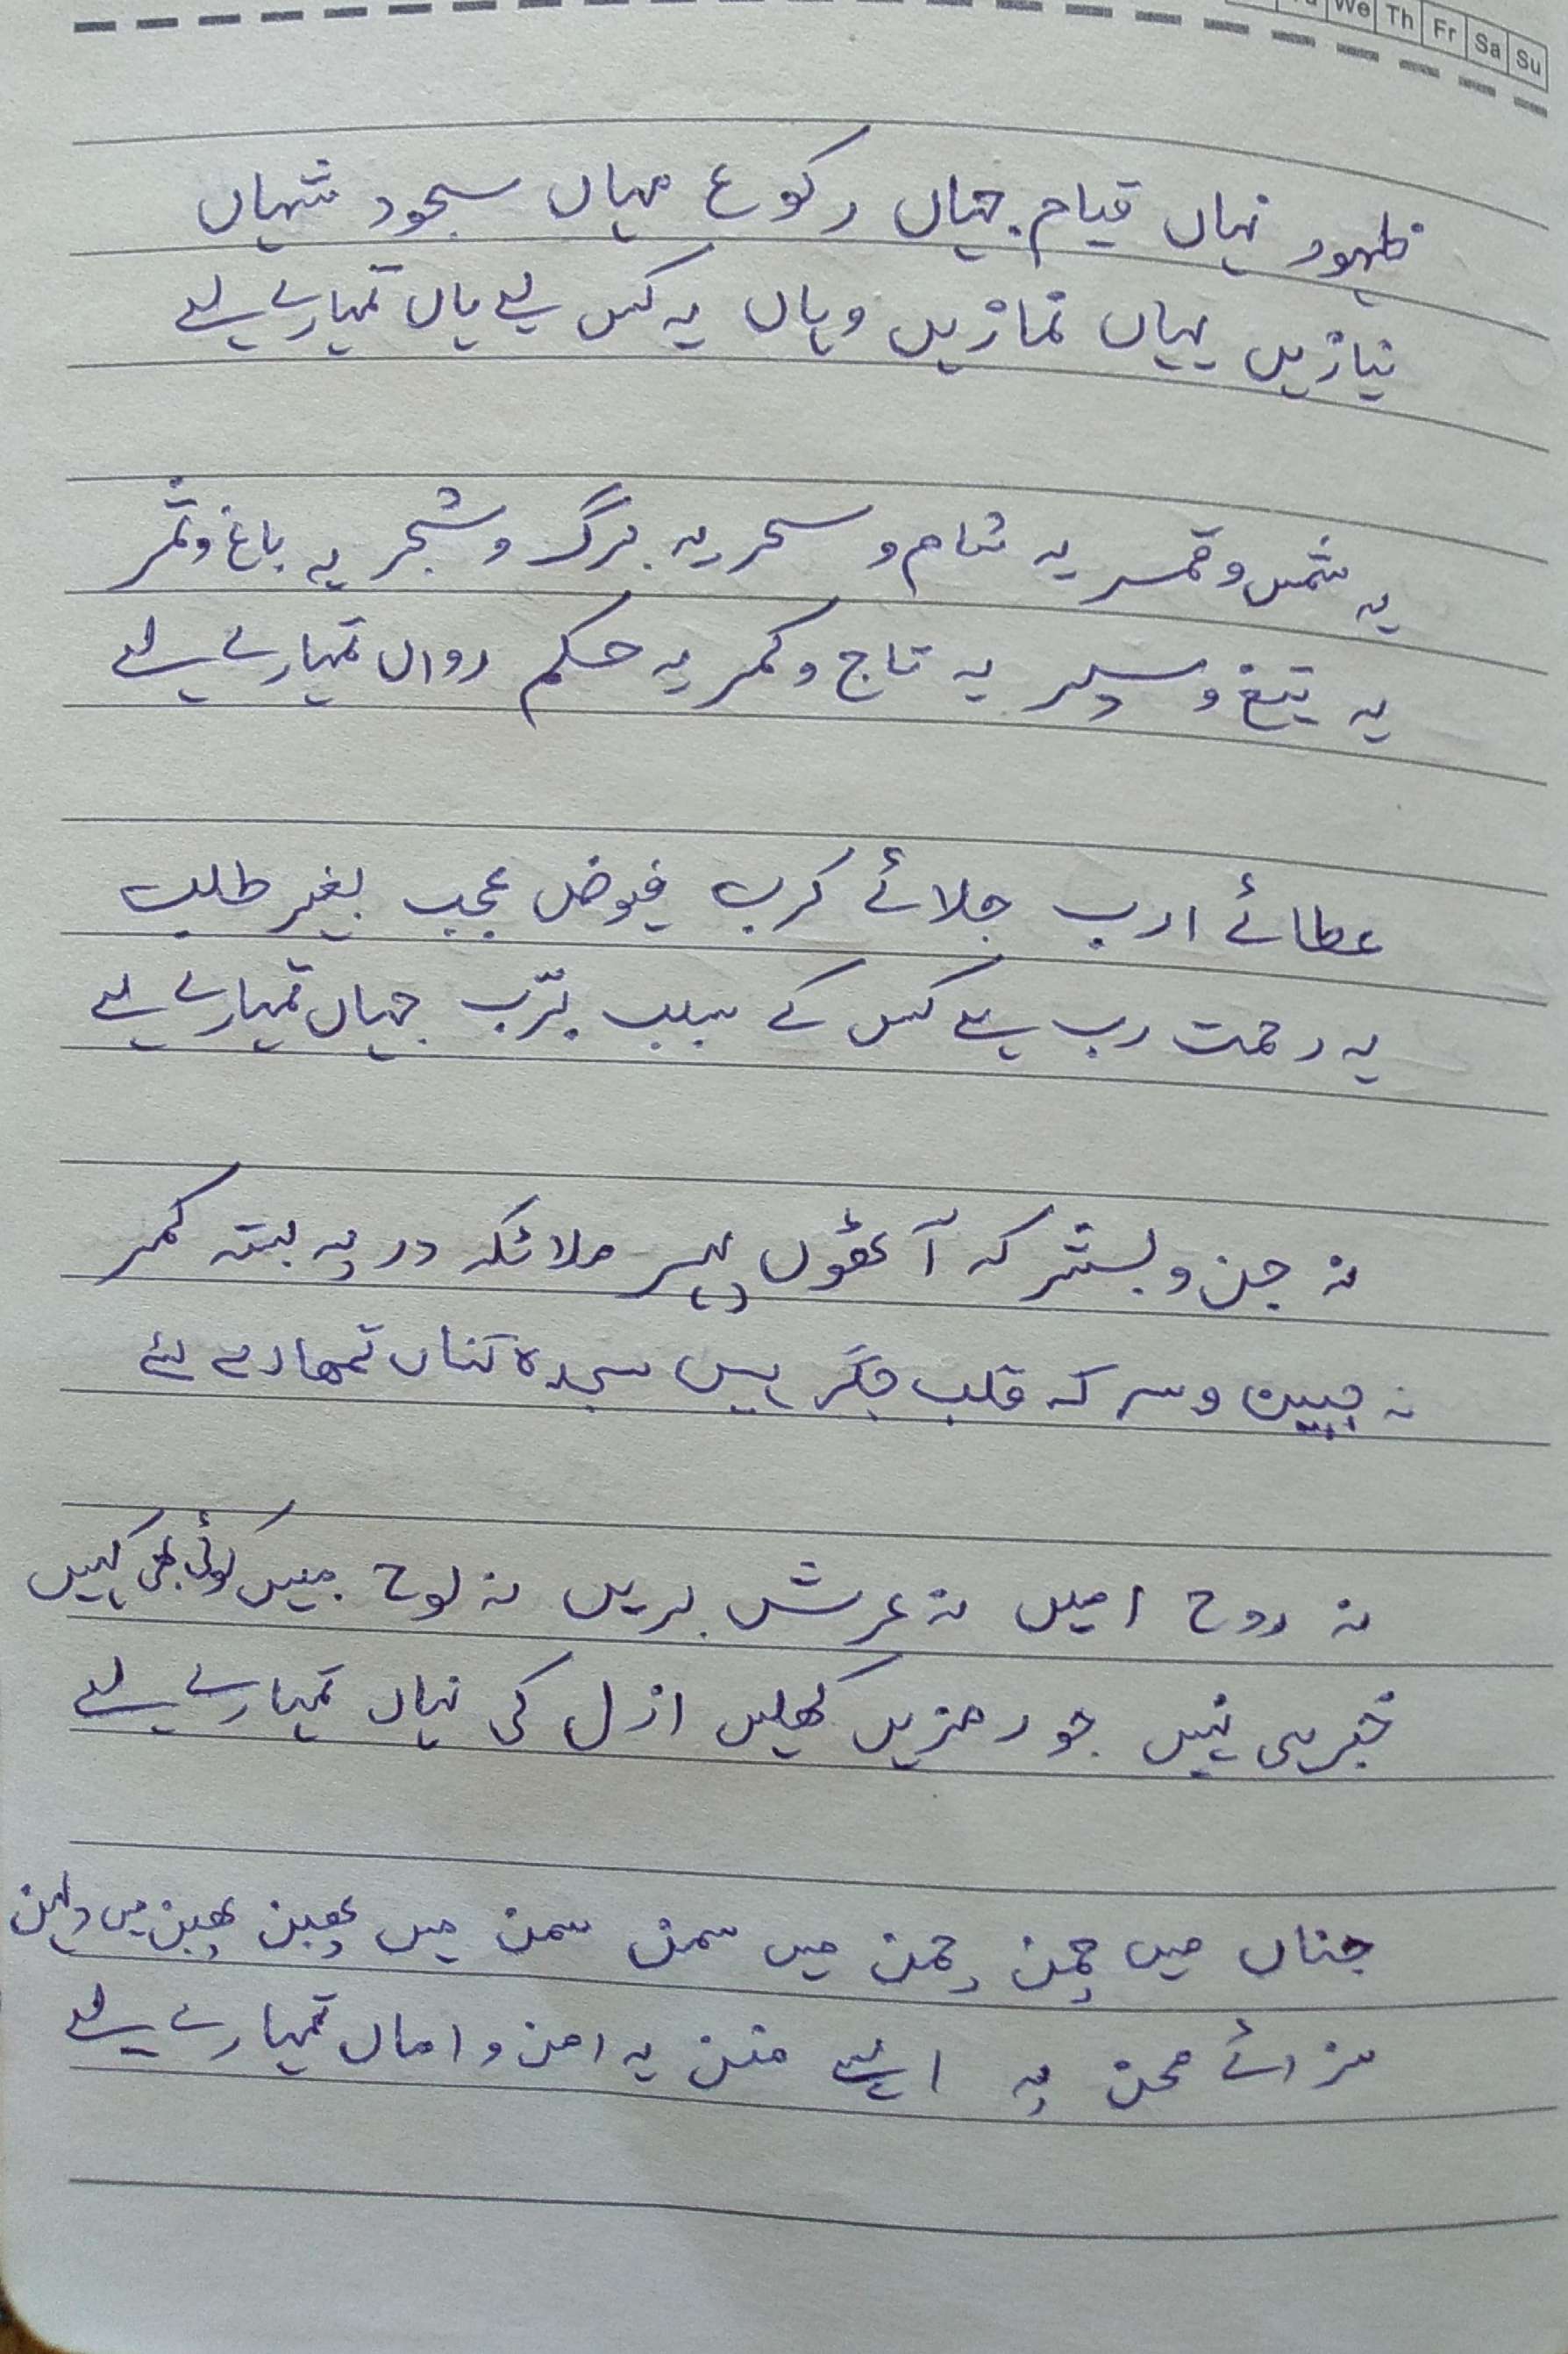 We Th Fr Sa Su
ظہور نہاں قیام جہاں رکوع مہاں سجود شہاں
نیازیں یہاں نمازیں وہاں یہ کس لیے ہاں تمہارے لیے
یہ شمس و قمر یہ شام و سحر یہ برگ و شجر یہ باغ و ثمر
یہ تیغ و سپر یہ تاج و کمر یہ حکم رواں تمہارے لیے
عطائے ارب جلائے کرب فیوض عجب بغیر طلب
یہ رحمت رب ہے کس کے سبب بَرّب جہاں تمہارے لیے
نہ جن و بشر کہ آٹھوں پہر ملائکہ در پہ بستہ کمر
نہ جبین و سر کہ قلب جگر ہیں سجدہ کناں تمھارے لئے
نہ روح امیں نہ عرش بریں نہ لوح مبیں کوئی بھی کہیں
خبر ہی نہیں جو رمزیں کھلیں ازل کی نہاں تمہارے لیے
جناں میں چمن چمن میں سمن سمن میں پھبن پھبن میں دلہن
سزائے محن پہ ایسے منن یہ امن و اماں تمہارے لیے